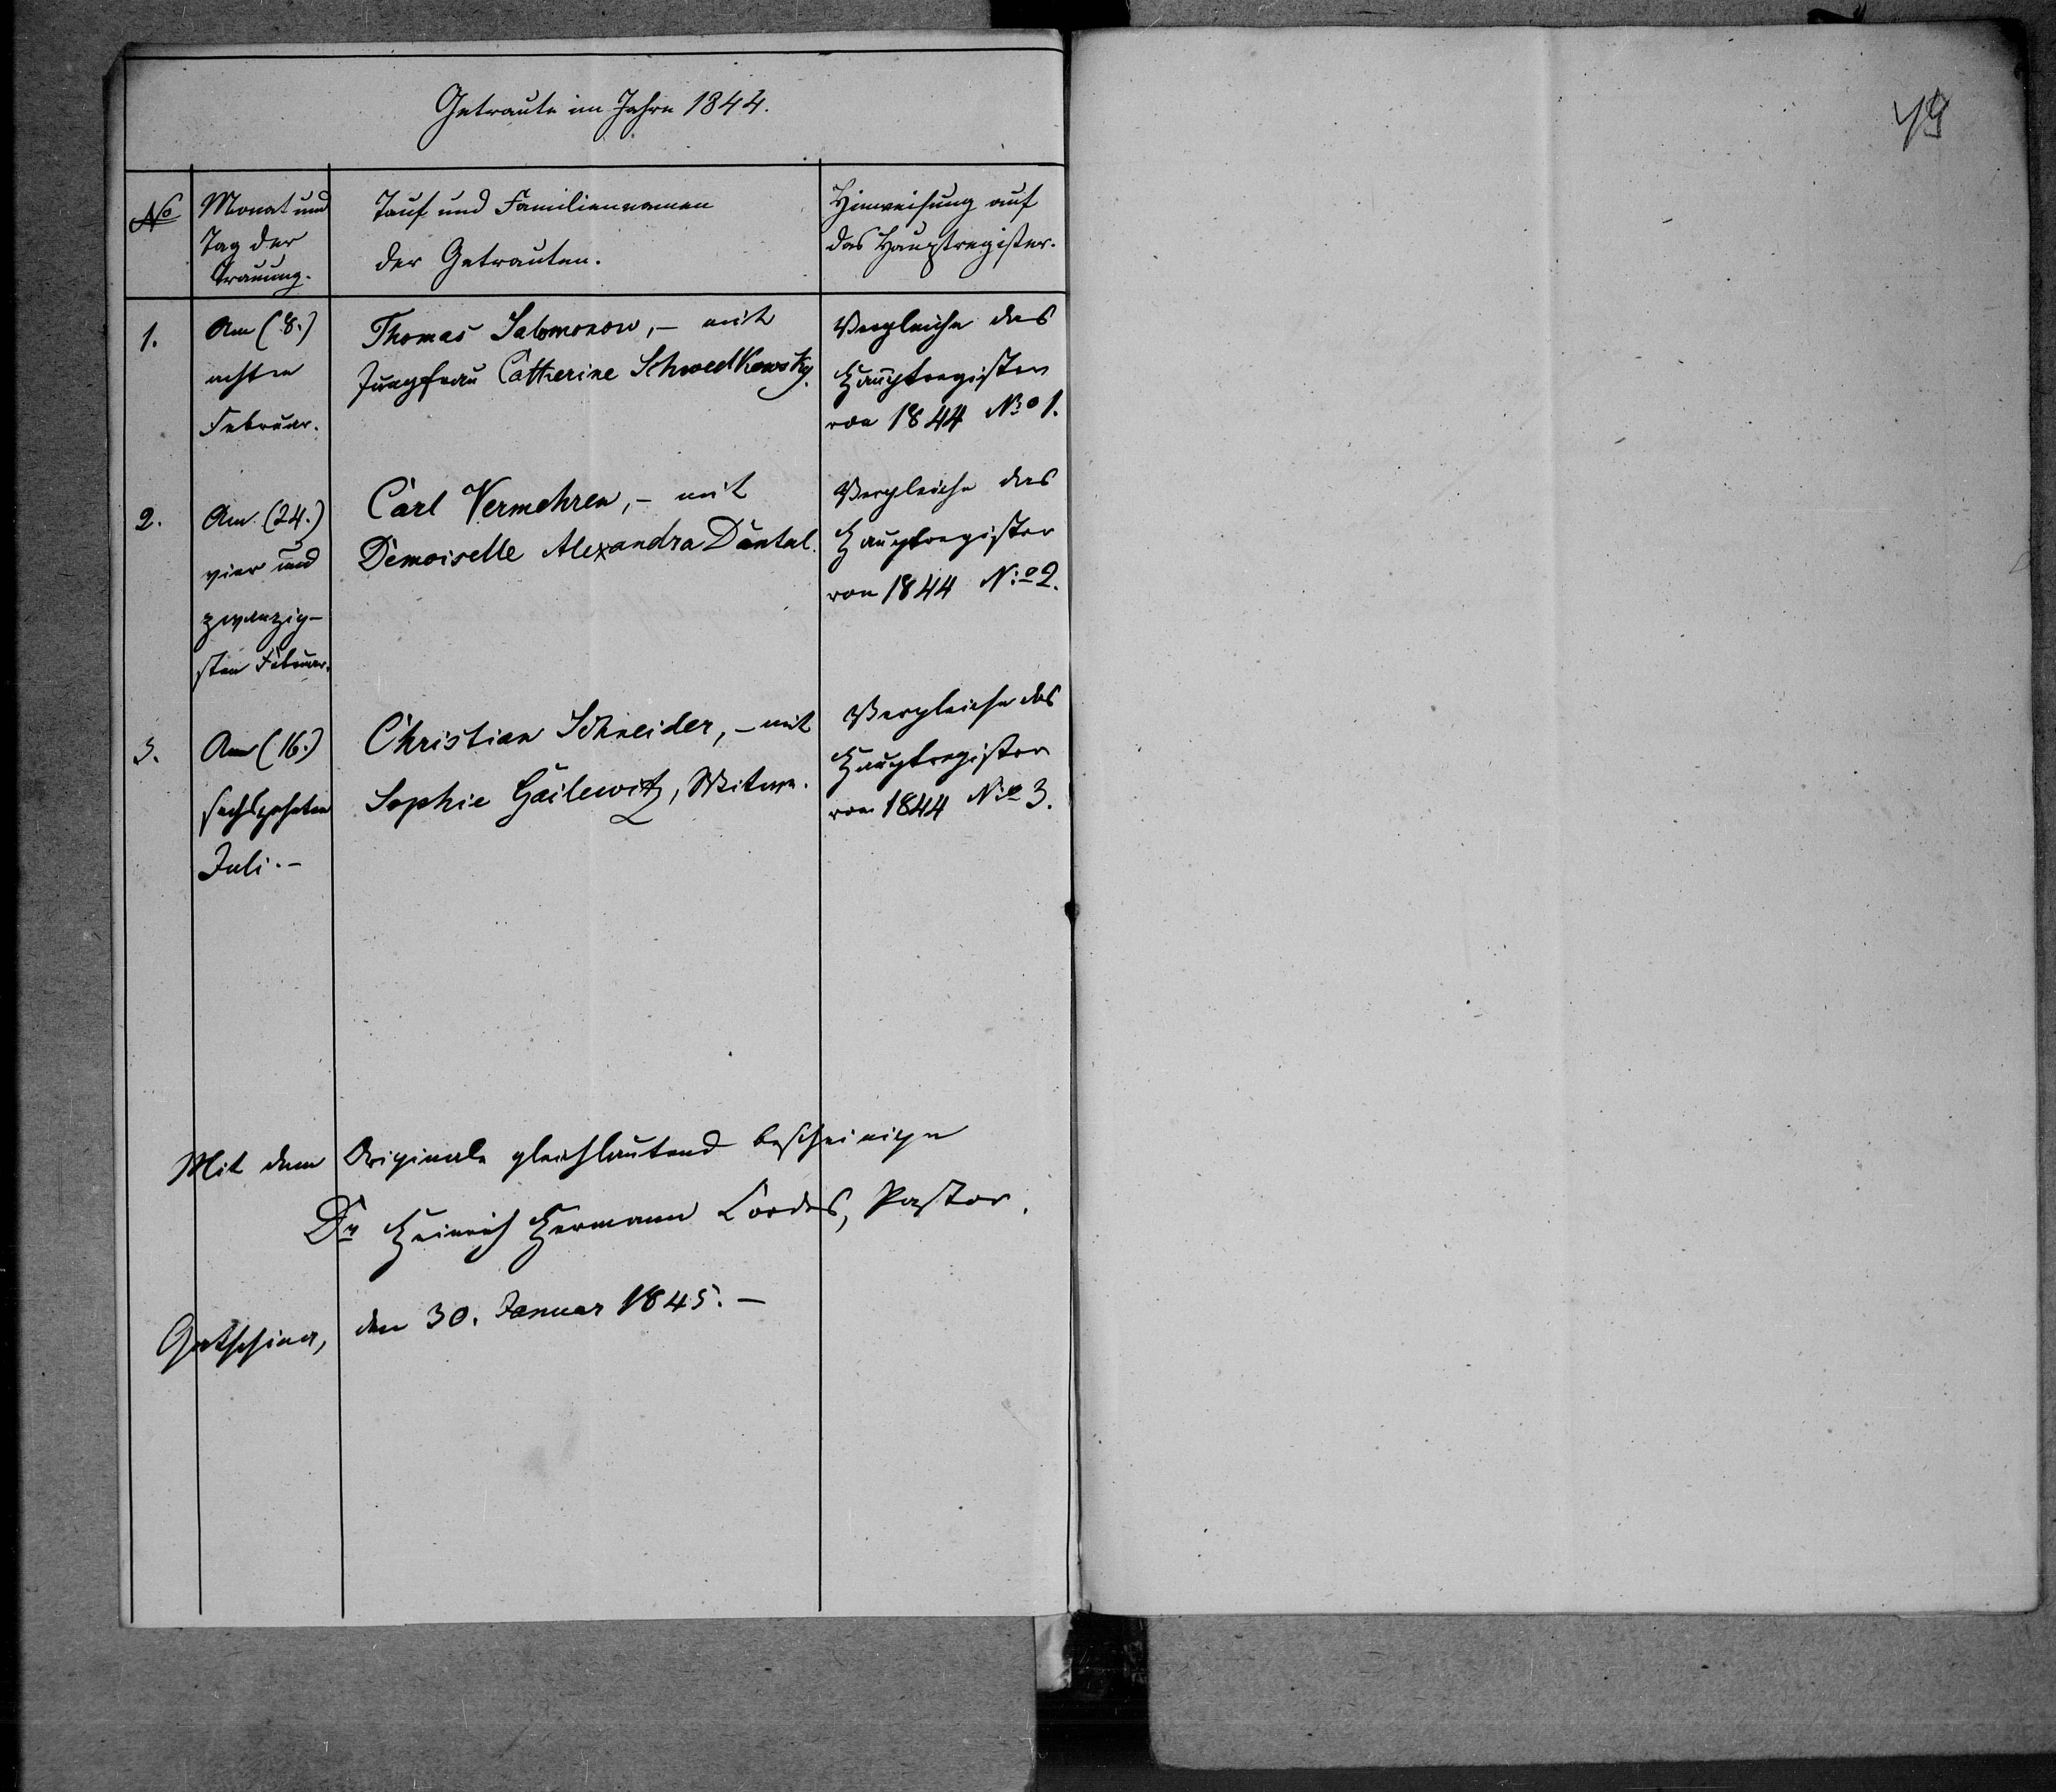 Getraute im Jahre 1844.
No
Monat und
Tag der
Trauung.
Tauf und Familiennamen
der Getrauten.
Hinweisung auf
das Hauptregister.
1.
Am (8.)
achten
Februar.
Thomas Salomonow, – mit
Jungfrau Catherine Schwedkowsky.
Vergleiche das
Hauptregister
von 1844 No 1.
2.
Am (24.)
vier und
zwanzig-
sten Februar.
Carl Vermehren, – mit
Demoiselle Alexandra
Vergleiche das
Hauptregister
von 1844 No 2.
3.
Am (16.)
sechszehnten
Juli. –
Christian Schneider, – mit
Sophie Gailewitz, Witwe.
Vergleiche das
Hauptregister
von 1844 No 3.
Mit dem Originale gleichlautend bescheinige
Dr Heinrich Hermann Cordes, Pastor.
Gatschina, den 30. Januar 1845. –